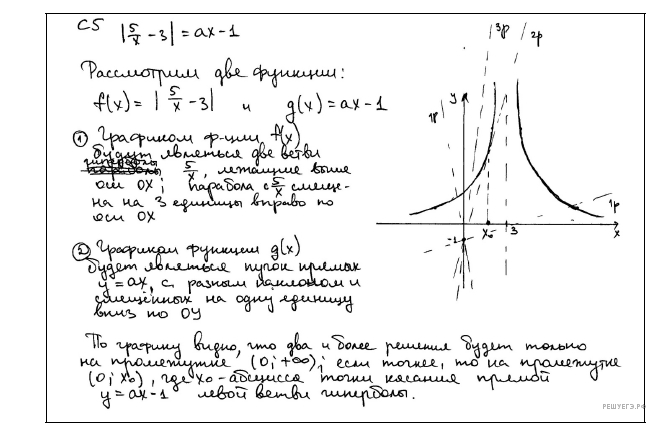 C5 |5/x - 3| = ax - 1
Рассмотрим две функции:
f(x) = |5/x - 3| и g(x) = ax - 1
① Графиком ф-ции f(x)
будут являться две ветви
гиперболы 5/x, лежащие выше
оси OX; парабола с 5/x смеще-
на на 3 единицы вправо по
оси OX
② Графиком функции g(x)
будет являться пучок прямых
y = ax, с разным наклоном и
смещённых на одну единицу
вниз по OY
По графику видно, что два и более решения будет только
на промежутке (0; +∞); если точнее, то на промежутке
(0; x₀), где x₀ - абсцисса точки касания прямой
y = ax - 1 левой ветви гиперболы.
3p
2p
1p
y
1p
-1
x₀
3
x
РЕШУЕГЭ.РФ